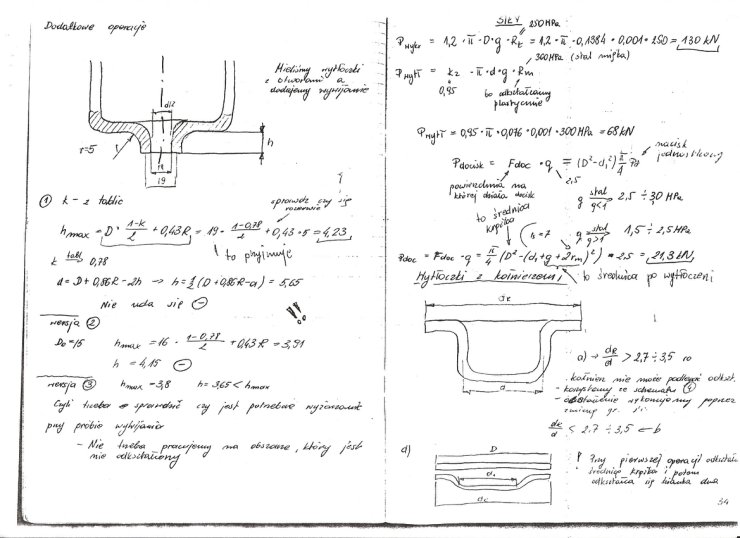 Dodatkowe operacje
Mieliśmy wytłoczki
z otworami a
dodajemy wywijanie
d12
r=5
h
14
19
① k - z tablic
sprawdz czy się
rozerwie
hmax = D · 1-k/2 + 0,43R = 19 · 1-0,78/2 + 0,43 · 5 = 4,23
k tabl→ 0,78
to przyjmuje
d = D + 0,86R - 2h → h = 1/2 (D + 0,86R - d) = 5,65
Nie uda się ⊖
!!
wersja ②
D0 = 15
hmax = 16 · 1-0,78/2 + 0,43R = 3,91
h = 4,15 ⊖
wersja ③ hmax = 3,8 h = 3,65 < hmax
Czyli trzeba sprawdzić czy jest potrzebne wyżarzanie
przy próbie wywijania
- Nie trzeba pracujemy na obszarze, który jest
nie odkształcony
SIŁY
250 MPa
Pwykr = 1,2 · π · D · g · Rt = 1,2 · π · 0,1384 · 0,001 · 250 = 130 kN
300 MPa (stal miękka)
Pwyt = k2 · π · d · g · Rm
0,95
bo odkształcamy
plastycznie
Pwyt = 0,95 · π · 0,076 · 0,001 · 300 MPa = 68 kN
nacisk
jednostkowy
Pdocisk = Fdoc · q = (D²-d1²) π/4
2,5
powierzchnia na
której działa docisk
to średnica
krążka
stal
g<1
2,5 ÷ 30 MPa
r=7
stal
g>1
1,5 ÷ 2,5 MPa
Pdoc = Fdoc · q = π/4 (D² - (d1+g+2rm)²) · 2,5 = 21,3 kN
Wytłoczki z kołnierzem
to średnica po wytłoczeni
dk
d
a) → dk/d > 2,7 ÷ 3,5
kołnierz nie może podlegać odkszt.
- korzystamy ze schematu ④
dk/d < 2,7 ÷ 3,5 ← b
d)
D
d1
Przy pierwszej operacji odkształc
średnicę krążka i potem
odkształca się
dna
34